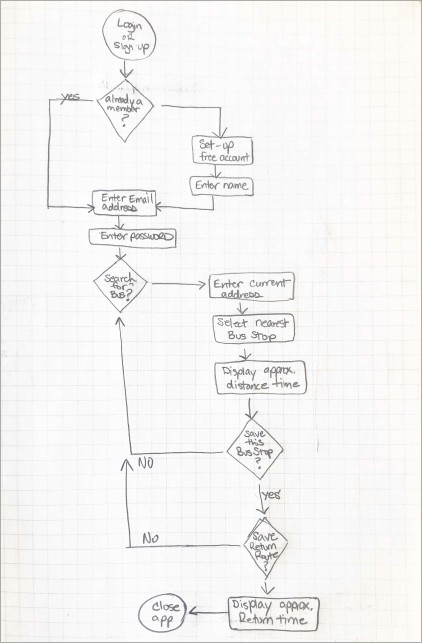 Login
or
sign up
yes
already a
member
?
Set-up
free account
Enter name
Enter Email
address
Enter password
Search
for
Bus?
Enter current
address
Select nearest
Bus Stop
Display approx.
distance time
Save
this
Bus Stop
?
NO
yes
Save
Return
Route
?
No
Display approx.
Return time
close
app